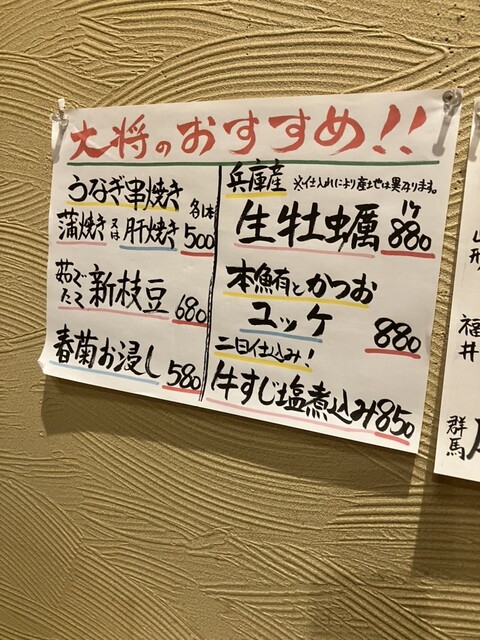 大将のおすすめ!!
うなぎ串焼き
蒲焼き又は肝焼き 各1本 500
茹でたて新枝豆 680
春菊お浸し 580
兵庫産 ※仕入れにより産地は異なります。
生牡蠣 1ケ 880
本鮪とかつお
ユッケ 880
二日仕込み!
牛すじ塩煮込み 850
山形
福井
群馬